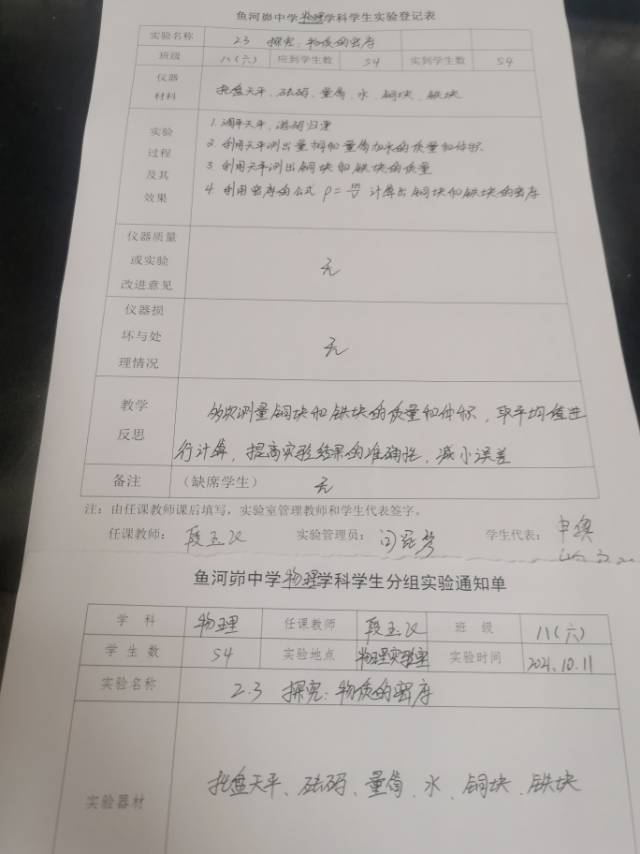 鱼河峁中学物理学科学生实验登记表
实验名称 2.3 探究:物质的密度
班级 八(六) 应到学生数 54 实到学生数 54
仪器材料 托盘天平、砝码、量筒、水、铜块、铁块
实验过程及其效果
1. 调平天平,游码归零
2. 利用天平测出量桶和量筒加水的质量和体积
3. 利用天平测出铜块和铁块的质量
4. 利用密度的公式 ρ=m/v 计算出铜块和铁块的密度
仪器质量或实验改进意见 无
仪器损坏与处理情况 无
教学反思 多次测量铜块和铁块的质量和体积,取平均值进
行计算,提高实验结果的准确性,减小误差
备注 (缺席学生) 无
注:由任课教师课后填写,实验室管理教师和学生代表签字。
任课教师: 段玉汉 实验管理员: 学生代表:
鱼河峁中学物理学科学生分组实验通知单
学 科 物理 任课教师 段玉汉 班 级 八(六)
学 生 数 54 实验地点 物理实验室 实验时间 2021.10.11
实验名称 2.3 探究:物质的密度
实验器材 托盘天平、砝码、量筒、水、铜块、铁块